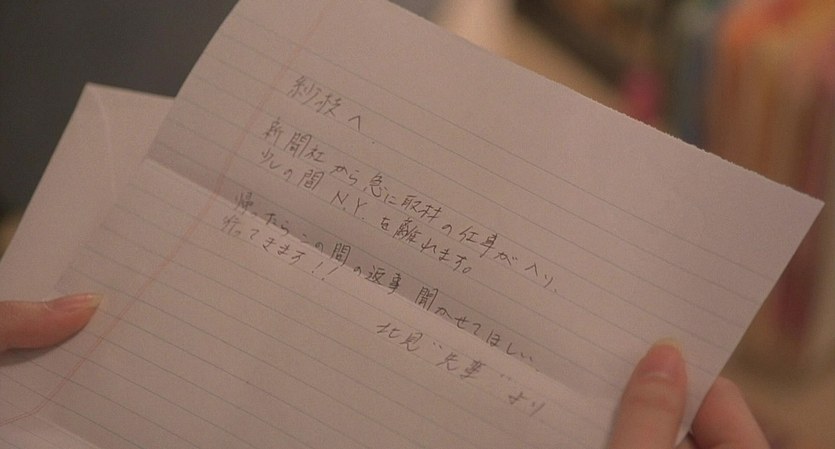 紗枝へ
新聞社から急に取材の仕事が入り、
少しの間 N.Y. を離れます。
帰ったらこの間の返事 聞かせてほしい。
行ってきます!!
北見 "先輩" より